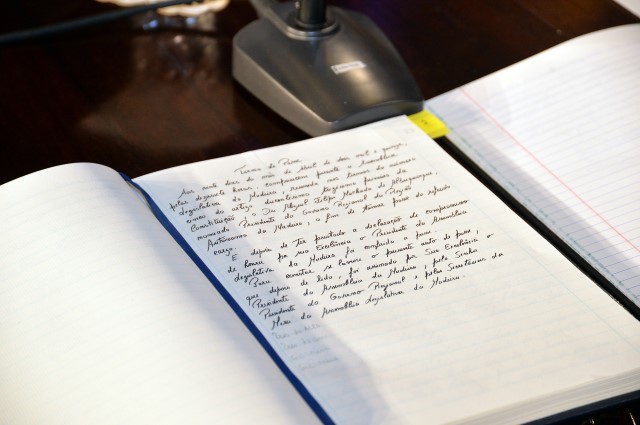 Termo de Posse
Aos vinte dias do mês de Abril de dois mil e quinze,
pelas dezassete horas, compareceu perante a Assembleia
Legislativa da Madeira, reunida nos termos do número
um do artigo duzentos trigésimo primeiro da
Constituição, o Dr. Miguel Filipe Machado de Albuquerque,
nomeado Presidente do Governo Regional da Região
Autónoma da Madeira, a fim de tomar posse do referido
cargo.
E depois de ter prestado a declaração de compromisso
de honra por sua Excelência o Presidente da Assembleia
Legislativa da Madeira foi conferida a posse.
Para constar se lavrou o presente auto de posse,
que depois de lido, foi assinado por Sua Excelência o
Presidente da Assembleia da Madeira, pelo Senhor
Presidente do Governo Regional e pelos Secretários da
Mesa da Assembleia Legislativa da Madeira.